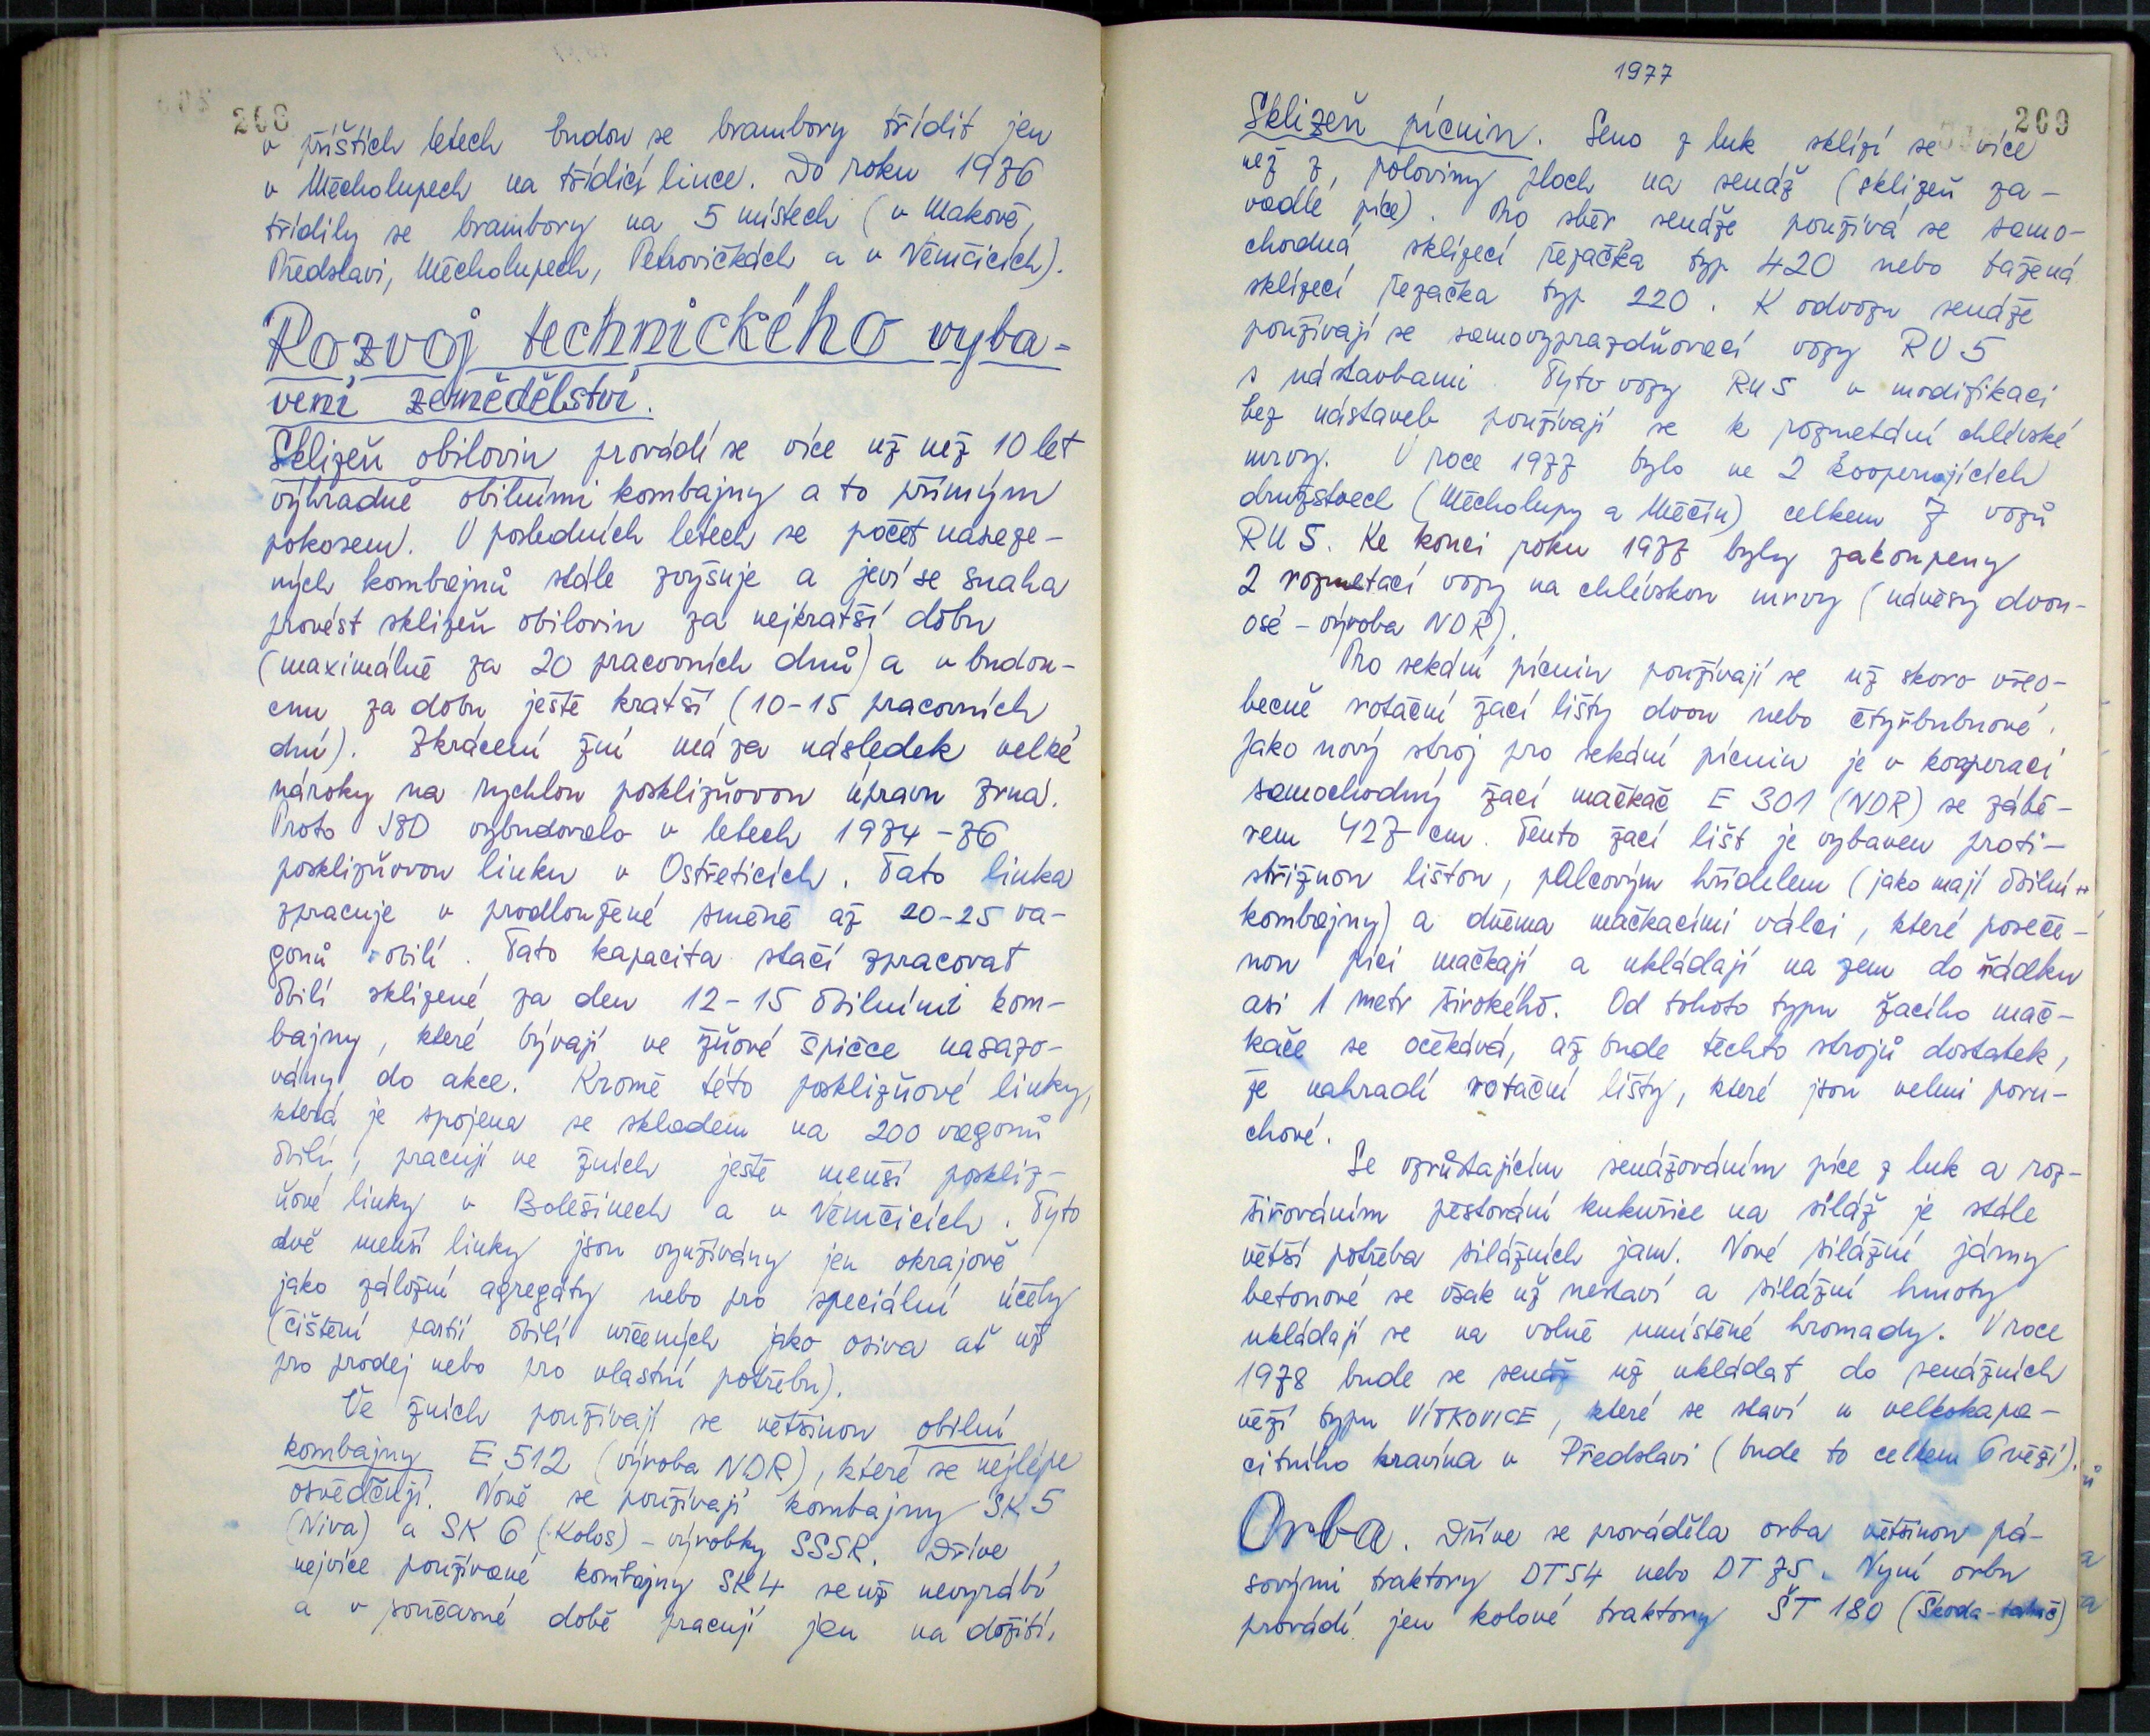 208
v příštích letech budou se brambory třídit jen
v Měcholupech na třídicí lince. Do roku 1976
třídily se brambory na 5 místech (v Makově,
Předslavi, Měcholupech, Petrovičkách a v Němčicích).
Rozvoj technického vyba-
vení zemědělství.
Sklizeň obilovin provádí se více už než 10 let
výhradně obilními kombajny a to přímým
pokosem. V posledních letech se počet nasaze-
ných kombajnů stále zvyšuje a jeví se snaha
provést sklizeň obilovin za nejkratší dobu
(maximálně za 20 pracovních dnů) a v budou-
cnu za dobu ještě kratší (10-15 pracovních
dní). Zkrácení žní má za následek velké
nároky na rychlou posklizňovou úpravu zrna.
Proto JZD vybudovalo v letech 1974-76
posklizňovou linku v Ostřeticích. Tato linka
zpracuje v prodloužené směně až 20-25 va-
gonů obilí. Tato kapacita stačí zpracovat
obilí sklizené za den 12-15 obilními kom-
bajny, které bývají ve žňové špičce nasazo-
vány do akce. Kromě této posklizňové linky,
která je spojena se skladem na 200 vagonů
obilí, pracují ve žních ještě menší poskliz-
ňové linky v Bolešinech a v Němčicích. Tyto
dvě menší linky jsou využívány jen okrajově
jako záložní agregáty nebo pro speciální účely
(čištění partií obilí určených jako osiva ať už
pro prodej nebo pro vlastní potřebu).
Ve žních používají se většinou obilní
kombajny E 512 (výroba NDR), které se nejlépe
osvědčují. Nově se používají kombajny SK 5
(Niva) a SK 6 (Kolos) - výrobky SSSR. Dříve
nejvíce používané kombajny SK 4 se už nevyrábí
a v současné době pracují jen na dožití.
1977
209
Sklizeň pícnin. Seno z luk sklízí se více
než z poloviny ploch na senáž (sklizeň za-
vadlé píce). Pro sběr senáže používá se samo-
chodná sklízecí řezačka typ 420 nebo tažená
sklízecí řezačka typ 220. K odvozu senáže
používají se samovyprazdňovací vozy RU 5
s nástavbami. Tyto vozy RU 5 v modifikaci
bez nástaveb používají se k rozmetání chlévské
mrvy. V roce 1977 bylo ve 2 kooperujících
družstvech (Měcholupy a Měčín) celkem 7 vozů
RU 5. Ke konci roku 1977 byly zakoupeny
2 rozmetací vozy na chlévskou mrvy (návěsy dvou-
osé - výroba NDR).
Pro sekání pícnin používají se už skoro všeo-
becně rotační žací lišty dvou nebo čtyřbubnové.
Jako nový stroj pro sekání pícnin je v kooperaci
samochodný žací mačkač E 301 (NDR) se zábě-
rem 427 cm. Tento žací lišt je vybaven proti-
střižnou lištou, palcovým hřídelem (jako mají obilní
kombajny) a dvěma mačkacími válci, které poseče-
nou píci mačkají a ukládají na zem do řádku
asi 1 metr širokého. Od tohoto typu žacího mač-
kače se očekává, až bude těchto strojů dostatek,
že nahradí rotační lišty, které jsou velmi poru-
chové.
Se vzrůstajícím senážováním píce z luk a roz-
šiřováním pěstování kukuřice na siláž je stále
větší potřeba silážních jam. Nové silážní jámy
betonové se však už nestaví a silážní hmoty
ukládají se na volně umístěné hromady. V roce
1978 bude se senáž už ukládat do senážních
věží typu VÍTKOVICE, které se staví u velkokapa-
citního kravína v Předslavi (bude to celkem 6 věží).
Orba. Dříve se prováděla orba většinou pá-
sovými traktory DT 54 nebo DT 75. Nyní orbu
provádí jen kolové traktory ŠT 180 (Škoda-tahač)